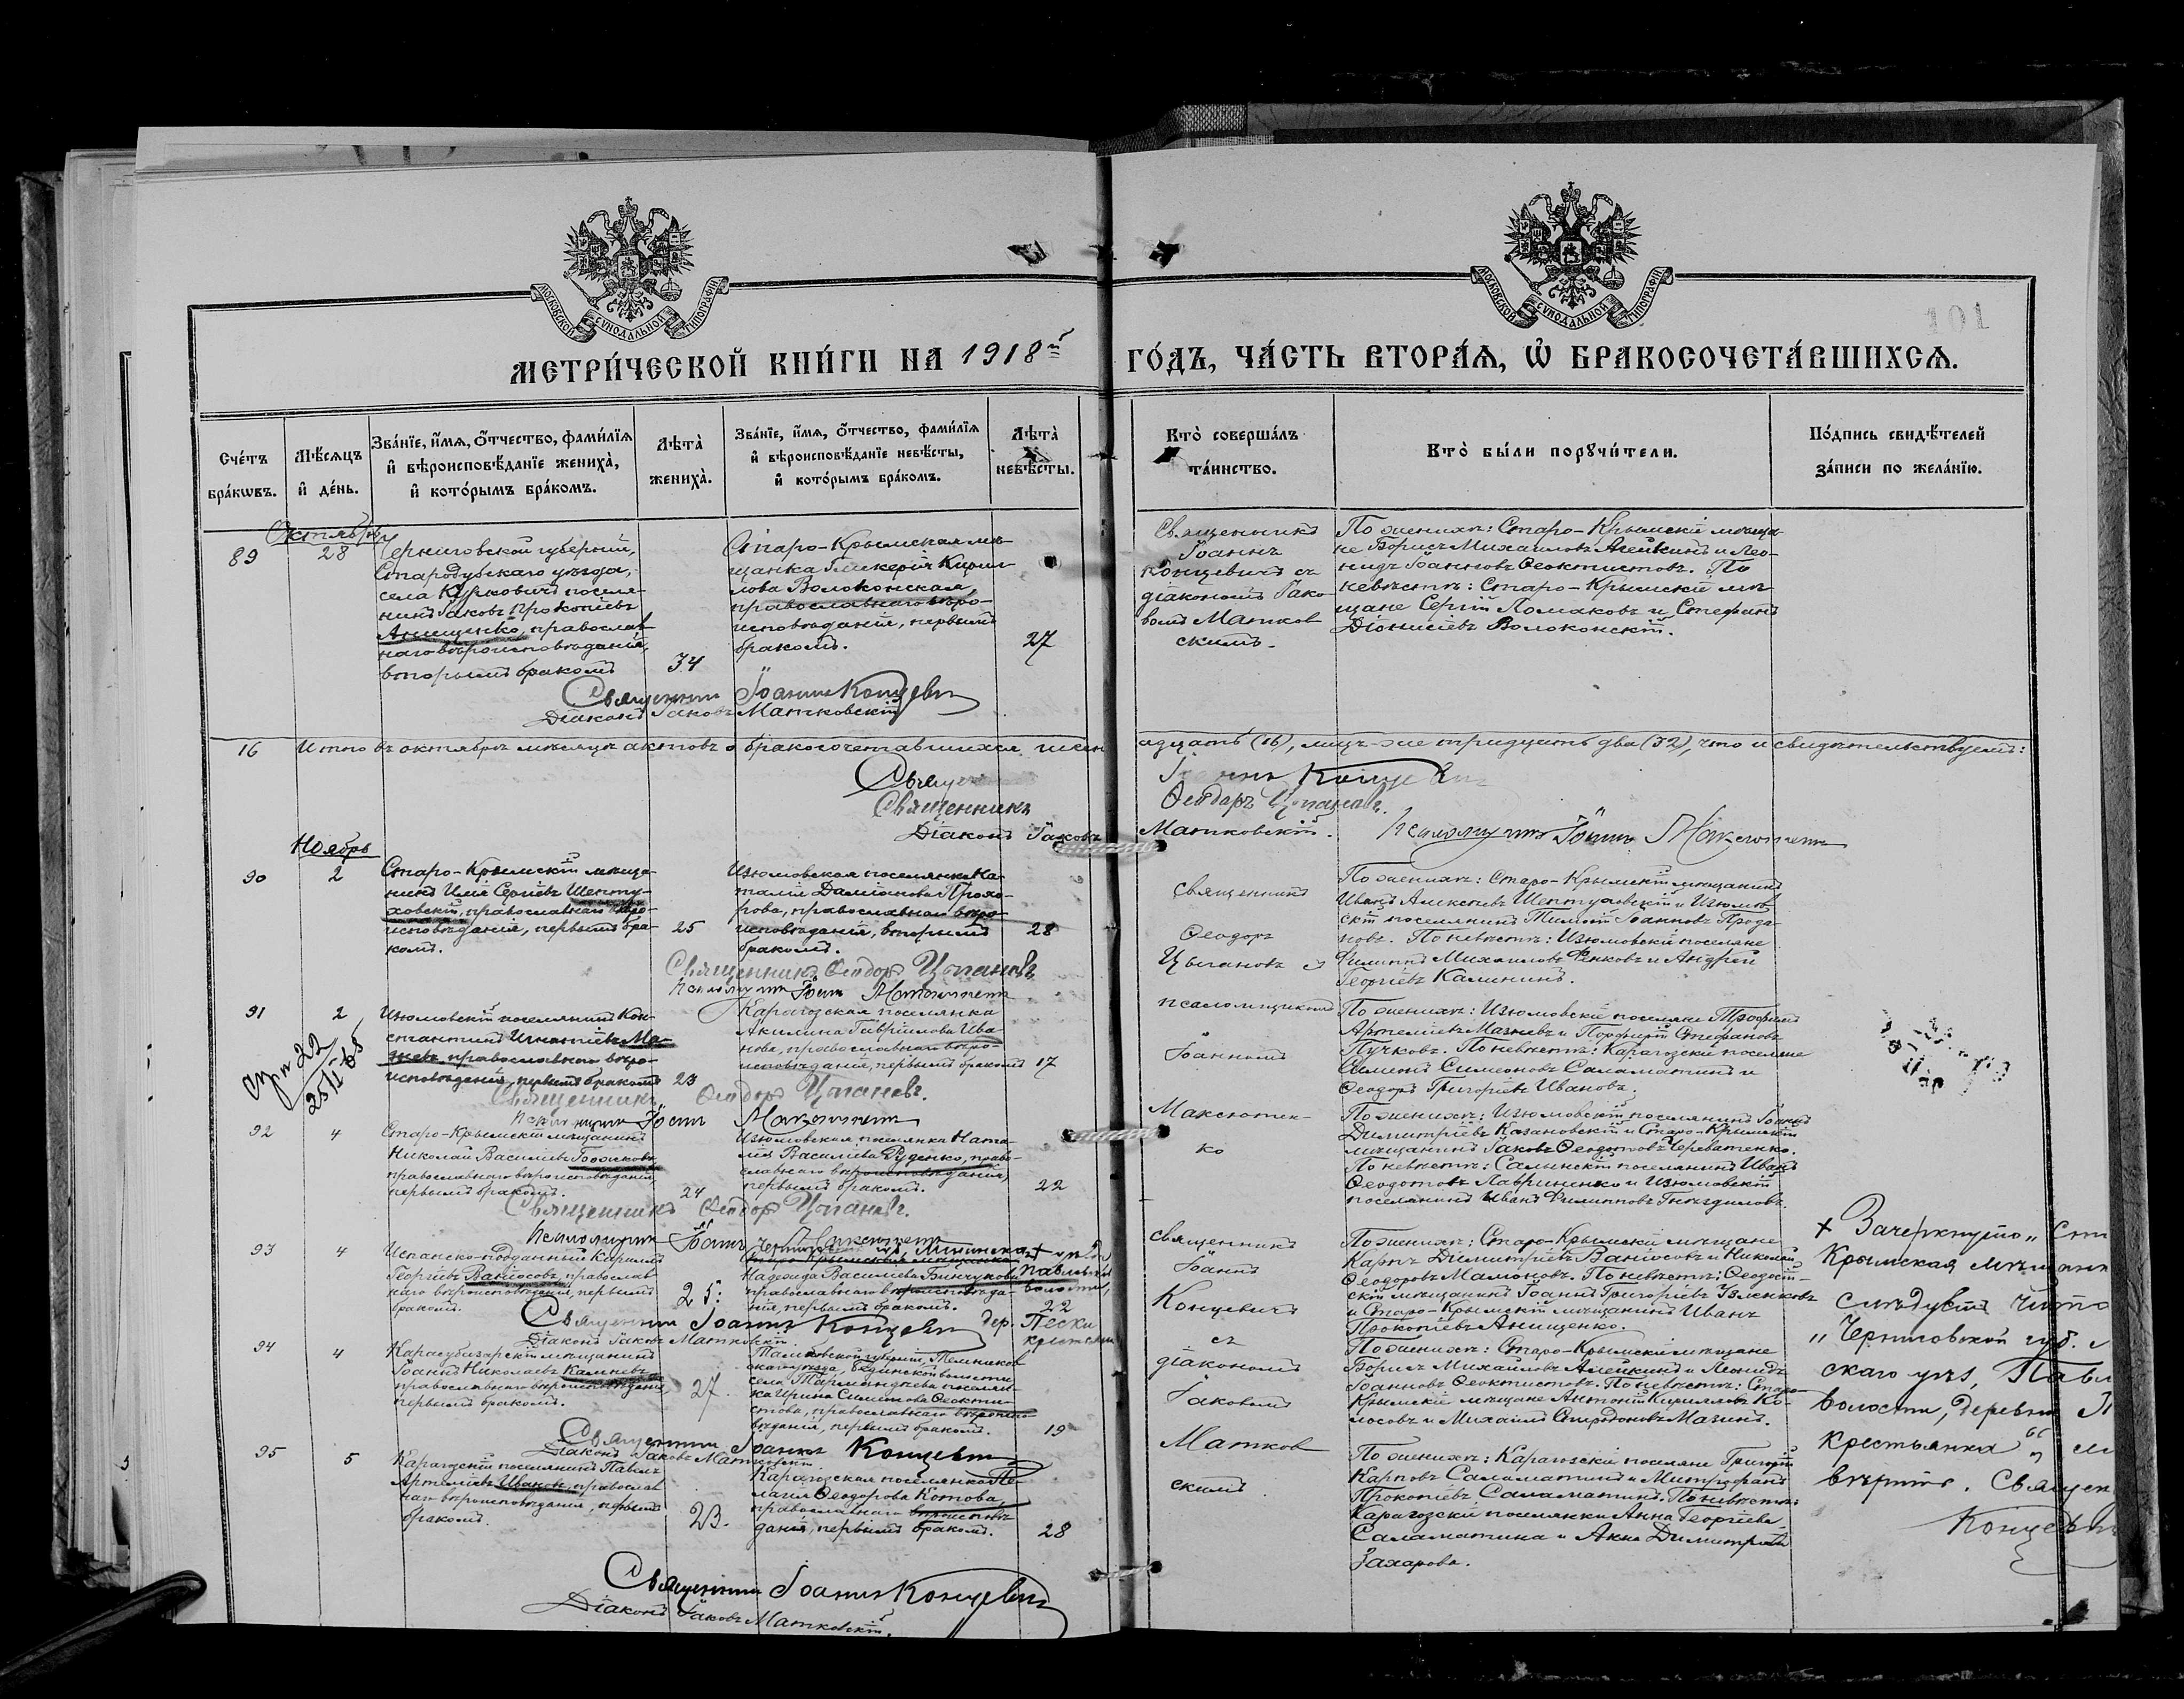 МОСКОВСКОЙ СѴНОДАЛЬНОЙ ТИПОГРАФІИ
МОСКОВСКОЙ СѴНОДАЛЬНОЙ ТИПОГРАФІИ
101
МЕТРИ́ЧЕСКОЙ КНИ́ГИ НА 1918й ГО́ДЪ, ЧА́СТЬ ВТОРА́Я, Ѽ БРАКОСОЧЕТА́ВШИХСЯ.
Сче́тъ
бра́кѡвъ.
Мѣ́сяцъ
и҆ де́нь.
Зва́нїе, и҆́мя, о҆́тчество, фами́лїя
и҆ вѣроисповѣ́данїе жениха̀,
и҆ кото́рымъ бра́комъ.
Лѣта̀
жениха̀.
Зва́нїе, и҆́мя, о҆́тчество, фами́лїя
и҆ вѣроисповѣ́данїе невѣ́сты,
и҆ кото́рымъ бра́комъ.
Лѣта̀
невѣ́сты.
Кто̀ соверша́лъ
та́инство.
Кто̀ бы́ли порꙋчи́тели.
По́дпись свидѣ́телей
за́писи по жела́нїю.
Октябрь
89
28
Черниговской губерніи,
Стародубскаго уѣзда,
села Курковичъ поселя-
нинъ Іаковъ Прокопіевъ
Анищенко, православ
наго вѣроисповѣданія,
вторымъ бракомъ
34
Старо-Крымская мѣ-
щанка Гликерія Кирил-
лова Волоконская,
православнаго вѣро-
исповѣданія, первымъ
бракомъ.
27
Священникъ
Іоаннъ
Концевичъ съ
діакономъ Іако
вомъ Матков
скимъ.
По женихѣ: Старо-Крымскіе мѣща-
не Борисъ Михаиловъ Алейкинъ и Лео-
нидъ Іоанновъ Ѳеоктистовъ. По
невѣстѣ: Старо-Крымскіе мѣ-
щане Сергій Ломаковъ и Стефанъ
Діонисіевъ Волоконскій.
Священникъ Іоаннъ Концевичъ
Діаконъ Іаковъ Матковскій
16
Итого въ октябрѣ мѣсяцѣ актовъ о бракосочетавшихся шестнадцать (16), лицъ-же тридцать два (32), что и свидѣтельствуемъ:
Священникъ Іоаннъ Концевичъ
Священникъ Ѳеодоръ Цыгановъ.
Діаконъ Іаковъ Матковскій. Псаломщикъ Іоаннъ Максютенко
Ноябрь
90
2
Старо-Крымскій мѣща-
нинъ Илія Сергіевъ Шепту-
ховскій, православнаго вѣро-
исповѣданія, первымъ бра-
комъ.
25
Изюмовская поселянка На-
талія Даміанова Прохо-
рова, православнаго вѣро-
исповѣданія, вторымъ
бракомъ.
28
Священникъ
Ѳеодоръ
Цыгановъ съ
псаломщикомъ
Іоанномъ
Максютен-
ко
По женихѣ: Старо-Крымскій мѣщанинъ
Иванъ Алексѣевъ Шептуховскій и Изюмов-
скій поселянинъ Тимофей Іоанновъ Прода-
новъ. По невѣстѣ: Изюмовскіе поселяне
Филиппъ Михаиловъ Фенковъ и Андрей
Георгіевъ Калининъ.
Священникъ Ѳеодоръ Цыгановъ
Псаломщикъ Іоаннъ Максютенко
91
2
Изюмовскій поселянинъ Кон-
стантинъ Игнатіевъ Ма-
зневъ, православнаго вѣро-
исповѣданія, первымъ бракомъ
23
Карагозская поселянка
Акилина Гавріилова Ива-
нова, православнаго вѣро-
исповѣданія, первымъ бракомъ
17
По женихѣ: Изюмовскіе поселяне Трофимъ
Артеміевъ Мазневъ и Порфирій Стефановъ
Пучковъ. По невѣстѣ: Карагозскіе поселяне
Симеонъ Симеоновъ Саламатинъ и
Ѳеодоръ Григоріевъ Ивановъ.
Священникъ Ѳеодоръ Цыгановъ.
Псаломщикъ Іоаннъ Максютенко
92
4
Старо-Крымскій мѣщанинъ
Николай Василіевъ
православнаго вѣроисповѣданія
первымъ бракомъ.
24
Изюмовская поселянка Ната-
лія Василіева Руденко, право-
славнаго вѣроисповѣданія,
первымъ бракомъ.
22
По женихѣ: Изюмовскій поселянинъ Іоаннъ
Димитріевъ Казановскій и Старо-Крымскій
мѣщанинъ Іаковъ Ѳеодотовъ Череватенко.
По невѣстѣ: Салынскій поселянинъ Иванъ
Ѳеодотовъ Лавриненко и Изюмовскій
поселянинъ Иванъ Филипповъ Гнѣздиловъ.
Священникъ Ѳеодоръ Цыгановъ.
Псаломщикъ Іоаннъ Максютенко
93
4
Испанско-подданный Кириллъ
Георгіевъ Вангосовъ, православ
наго вѣроисповѣданія, первымъ
бракомъ.
25:
Старо-Крымская мѣщанка
Надежда Василіева
православнаго вѣроисповѣда-
нія, первымъ бракомъ.
22
дер. Пески
Священникъ
Іоаннъ
Концевичъ
съ
діакономъ
Іаковомъ
Матков
скимъ
По женихѣ: Старо-Крымскіе мѣщане
Карпъ Димитріевъ Вангосовъ и Николай
Ѳеодоровъ Мамоновъ. По невѣстѣ: Ѳеодосій-
скій мѣщанинъ Іоаннъ Григоріевъ
и Старо-Крымскій мѣщанинъ Иванъ
Прокопіевъ Анищенко.
+ Зачеркнуто „Ст
Крымская мѣщанк
слѣдуетъ чита
„Черниговской губ.
скаго уѣз, Павл
волости, деревни П
крестьянка“
вѣрно. Священ
Концевич
Священникъ Іоаннъ Концевичъ
Діаконъ Іаковъ Матковскій
94
4
Карасубазарскій мѣщанинъ
Іоаннъ Николаевъ Камневъ,
православнаго вѣроисповѣданія
первымъ бракомъ.
27.
села поселян-
ка Ирина Симеонова Ѳеокти-
стова, православнаго вѣроиспо-
вѣданія, первымъ бракомъ.
19
По женихѣ: Старо-Крымскіе мѣщане
Борисъ Михаиловъ Алейкинъ и Леонидъ
Іоанновъ Ѳеоктистовъ. По невѣстѣ: Старо-
Крымскіе мѣщане Антоній Кирилловъ Ко-
лосовъ и Михаилъ Спиридоновъ Мазинъ.
Священникъ Іоаннъ Концевичъ
Діаконъ Іаковъ Матковскій
95
5
Карагозскій поселянинъ Павелъ
Артеміевъ Ивановъ, православ
наго вѣроисповѣданія, первымъ
бракомъ.
23.
Карагозская поселянка Пе-
лагія Ѳеодорова Котова,
православнаго вѣроисповѣ-
данія, первымъ бракомъ.
28
По женихѣ: Карагозскіе поселяне Григорій
Карповъ Саламатинъ и Митрофанъ
Прокопіевъ Саламатинъ. По невѣстѣ:
Карагозскіе поселянки Анна Георгіева
Саламатина и Анна Димитріева
Захарова.
Священникъ Іоаннъ Концевичъ
Діаконъ Іаковъ Матковскій.